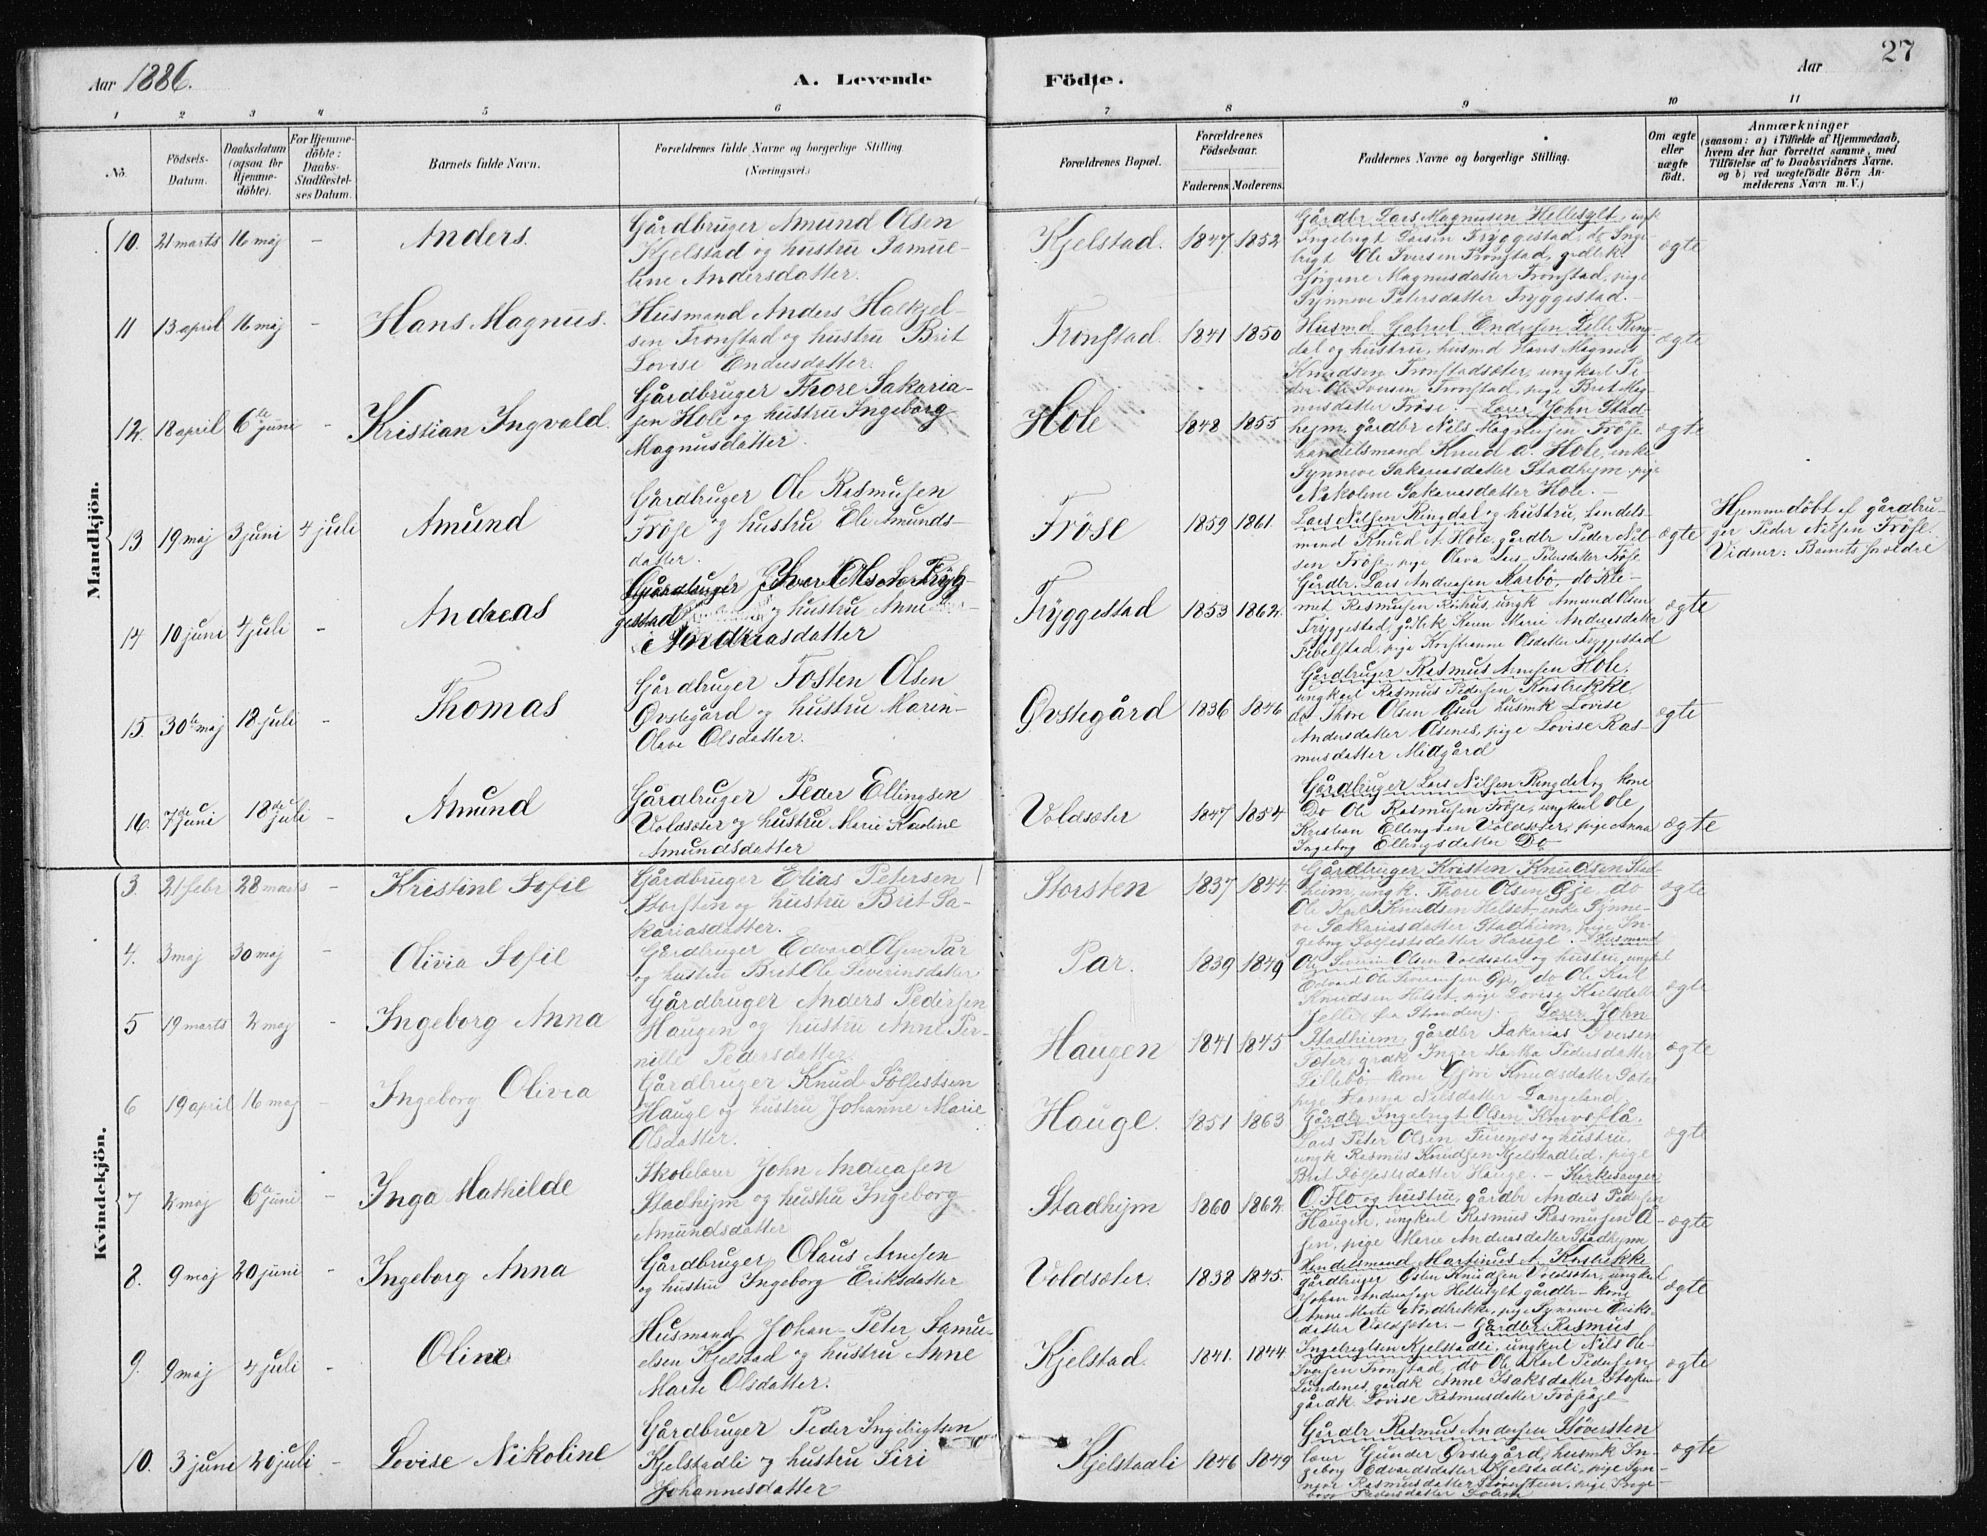 Aar 1886.
A. Levende
Födte.
Aar
27
1
2
3
4
5
6
7
8
9
10
11
No.
Födsels-
Datum.
Daabsdatum
(ogsaa for
Hjemme-
döbte).
For Hjemme-
döbte:
Daabs-
Stadfæstel-
ses Datum.
Barnets fulde Navn.
Forældrenes fulde Navne og borgerlige Stilling
(Næringsvei.)
Forældrenes Bopæl.
Forældrenes
Födselsaar.
Faderens.
Moderens.
Faddernes Navne og borgerlige Stilling.
Om ægte
eller
uægte
födt.
Anmærkninger
(saasom: a) i Tilfælde af Hjemmedaab,
hvem der har forrettet samme, med
Tilföielse af to Daabsvidners Navne.
og b) ved uægtefödte Börn An-
melderens Navn m. V.)
Mandkjön.
10. 21 marts 16 maj - Anders.
Gårdbruger Amund Olsen
Kjelstad og hustru Samue-
line Andersdatter.
Kjelstad. 1847. 1852
Gårdbr Lars Magnusen Hellesylt, ungk
Ingebrigt Larsen Tryggestad, do Inge-
brigt Ole Iversen Tronstad, grdbrk
Jörgine Magnusdatter Tronstad, pige
Synneve Petersdatter Tryggestad.
ægte
11 13 april 16 maj - Hans Magnus.
Husmand Anders Halkjel-
sen Tronstad og hustru Brit
Lovise Endresdatter.
Tronstad. 1841 1850
Husmd Gabriel Endresen Lille Ring-
dal og hustru, husmd Hans Magnus
Knudsen Tronstadsæter, ungkarl Pe-
der Ole Iversen Tronstad, pige Brit Mag-
nusdatter Fröse.
ægte
12. 18 april 6te juni - Kristian Ingvald.
Gårdbruger Thore Sakaria-
sen Hole og hustru Ingeborg
Magnusdatter.
Hole 1848 1855
Lærer John Stad-
hejm, gårdbr Nils Magnusen Fröse
handelsmand Knud A. Hole, enke
Synneve Sakariasdatter Stadhejm, pige
Nikoline Sakariasdatter Hole.
ægte
13 19 maj 3 juni 4 juli Amund
Gårdbruger Ole Rasmusen
Fröse og hustru Eli Amunds-
datter.
Fröse 1859 1861.
Lars Nilsen Ringdal og hustru, handels-
mand Knud A. Hole, gårdbr Peder Nil-
sen Fröse, pige Olava Petersdatter Fröse
ægte
Hjemmedöbt af gårdbru-
ger Peder Nilsen Fröse.
Vidner: Barnets forældre
14 10 juni 4 juli - Andreas
Gårdbruger Iver Olsen Tryg-
gestad og hustru Anne
Andreasdatter
Tryggestad 1853 1862.
Gårdbr. Lars Andreasen Karbö, do Kle-
met Rasmusen Rohus, ungk Amund Olsen
Tryggestad, gårdbrk Karen Marie Andreasdatter
Fivelstad, pige Kristianne Olsdatter Tryggestad
ægte
15. 30te maj 18 juli - Thomas
Gårdbruger Tosten Olsen
Øvstegård og hustru Maren-
Olave Olsdatter.
Øvstegård 1836 1846
Gårdbruger Rasmus Arnesen Hole,
ungkarl Rasmus Pedersen Korsbrekke,
do Thore Olsen Åsen, husmk Lovise
Andersdatter Åsenes, pige Lovise Ras-
musdatter Midgård
ægte
16. 7de juni 18de juli - Amund
Gårdbruger Peder Ellingsen
Voldsæter og hustru Marie Karoline
Amundsdatter
Voldsæter 1847 1854
Gårdbruger Lars Nilsen Ringdal, kone
Do Ole Rasmusen Fröse, ungkarl Ole
Kristian Ellingsen Voldsæter, pige Anna
Ingeborg Ellingsdatter Do
ægte
Kvindekjön.
3. 21 febr 28 marts - Kristine Sofie
Gårdbruger Elias Petersen
Storsten og hustru Brit Sa-
kariasdatter.
Storsten 1837 1844.
Gårdbruger Kristen Knudsen Stad-
heim, ungk. Thore Olsen Gje, do
Ole Karl Knudsen Helset, enke Synne-
ve Sakariasdatter Stadheim, pige In-
geborg Sölfestsdatter Hauge.
ægte
4. 3 maj 30 maj - Olivia Sofie
Gårdbruger Edvard Olsen Par
og hustru Brit Ole Severinsdatter
Par. 1839 1849
Husmand
Ole Severin Olsen Voldsæter og hustru, ungkarl
Edvard Ole Severinsen Gje, do Ole Karl
Knudsen Helset, pige Lovise Karlsdatt
Jelle fra Stranden.
ægte
5 19 marts 2 maj - Ingeborg Anna
Gårdbruger Anders Pedersen
Haugen og hustru Anne Per-
nille Pedersdatter.
Haugen 1841 1845
Lærer John
Stadheim, gårdbr Sakarias Iversen
Sæter, grdk Inger Martha Pedersdatter
Lillebö, kone Gjöri Knudsdatter Sæter
pige Hanna Nilsdatter Langeland.
ægte
6 19 april 16 maj - Ingeborg Olivia
Gårdbruger Knud Sölfestsen
Hauge og hustru Johanne Marie
Olsdatter.
Hauge. 1851 1863
Gårdbr Ingebrigt Olsen Knivsflå.
Lars Peter Olsen Furenes og hustru,
ungk Rasmus Knudsen Kjelstadlid, pige
Brit Sölfestsdatter Hauge.
ægte
7 2 maj 6te juni - Inga Mathilde
Skolelærer John Andreasen
Stadhejm og hustru Ingeborg
Amundsdatter
Stadhejm 1860 1862.
Kirkesanger
O Flo og hustru, gårdbr Anders Pedersen
Haugen, ungkarl Rasmus Rasmusen Å-
sen, pige Marie Andreasdatter Stadhejm
ægte
8. 9 maj 20 juni - Ingeborg Anna
Gårdbruger Olaus Arnesen
og hustru Ingeborg Eriksdatter
Voldsæter. 1838 1845.
Handelsmand Martinus A. Korsbrekke
Gårdbruger Östen Knudsen Voldsæter, ungkarl
Johan Andersen Hellesylt gårdbr- kone
Anne Marte Nordbrekke, pige Synneve Eriks-
datter Voldsæter.
ægte
9. 9 maj 4 juli - Oline
Husmand Johan Peter Samu-
elsen Kjelstad og hustru Anne
Marte Olsdatter.
Kjelstad. 1841. 1844
Gårdbr Rasmus
Ingebrigtsen Kjelstadli, ungkarl Nils Ole
Iversen Tronstad, do Ole Karl Pedersen
Lundenes, gårdk Anne Isaksdatter Storsten
gårdk. Lovise Rasmusdatter Fröse
ægte
10. 3 juni 20 juli - Lovise Nikoline
Gårdbruger Peder Ingebrigtsen
Kjelstadli og hustru Siri
Johannesdatter
Kjelstadli 1846 1849
Gårdbr Rasmus Andersen Stöversten
lærer Gunder Övstegård, husmk In-
geborg Edvardsdatter Kjelstadli, pige Syn-
növe Rasmusdatter Storsten, pige Inge-
borg Pedersdatter Solem
ægte